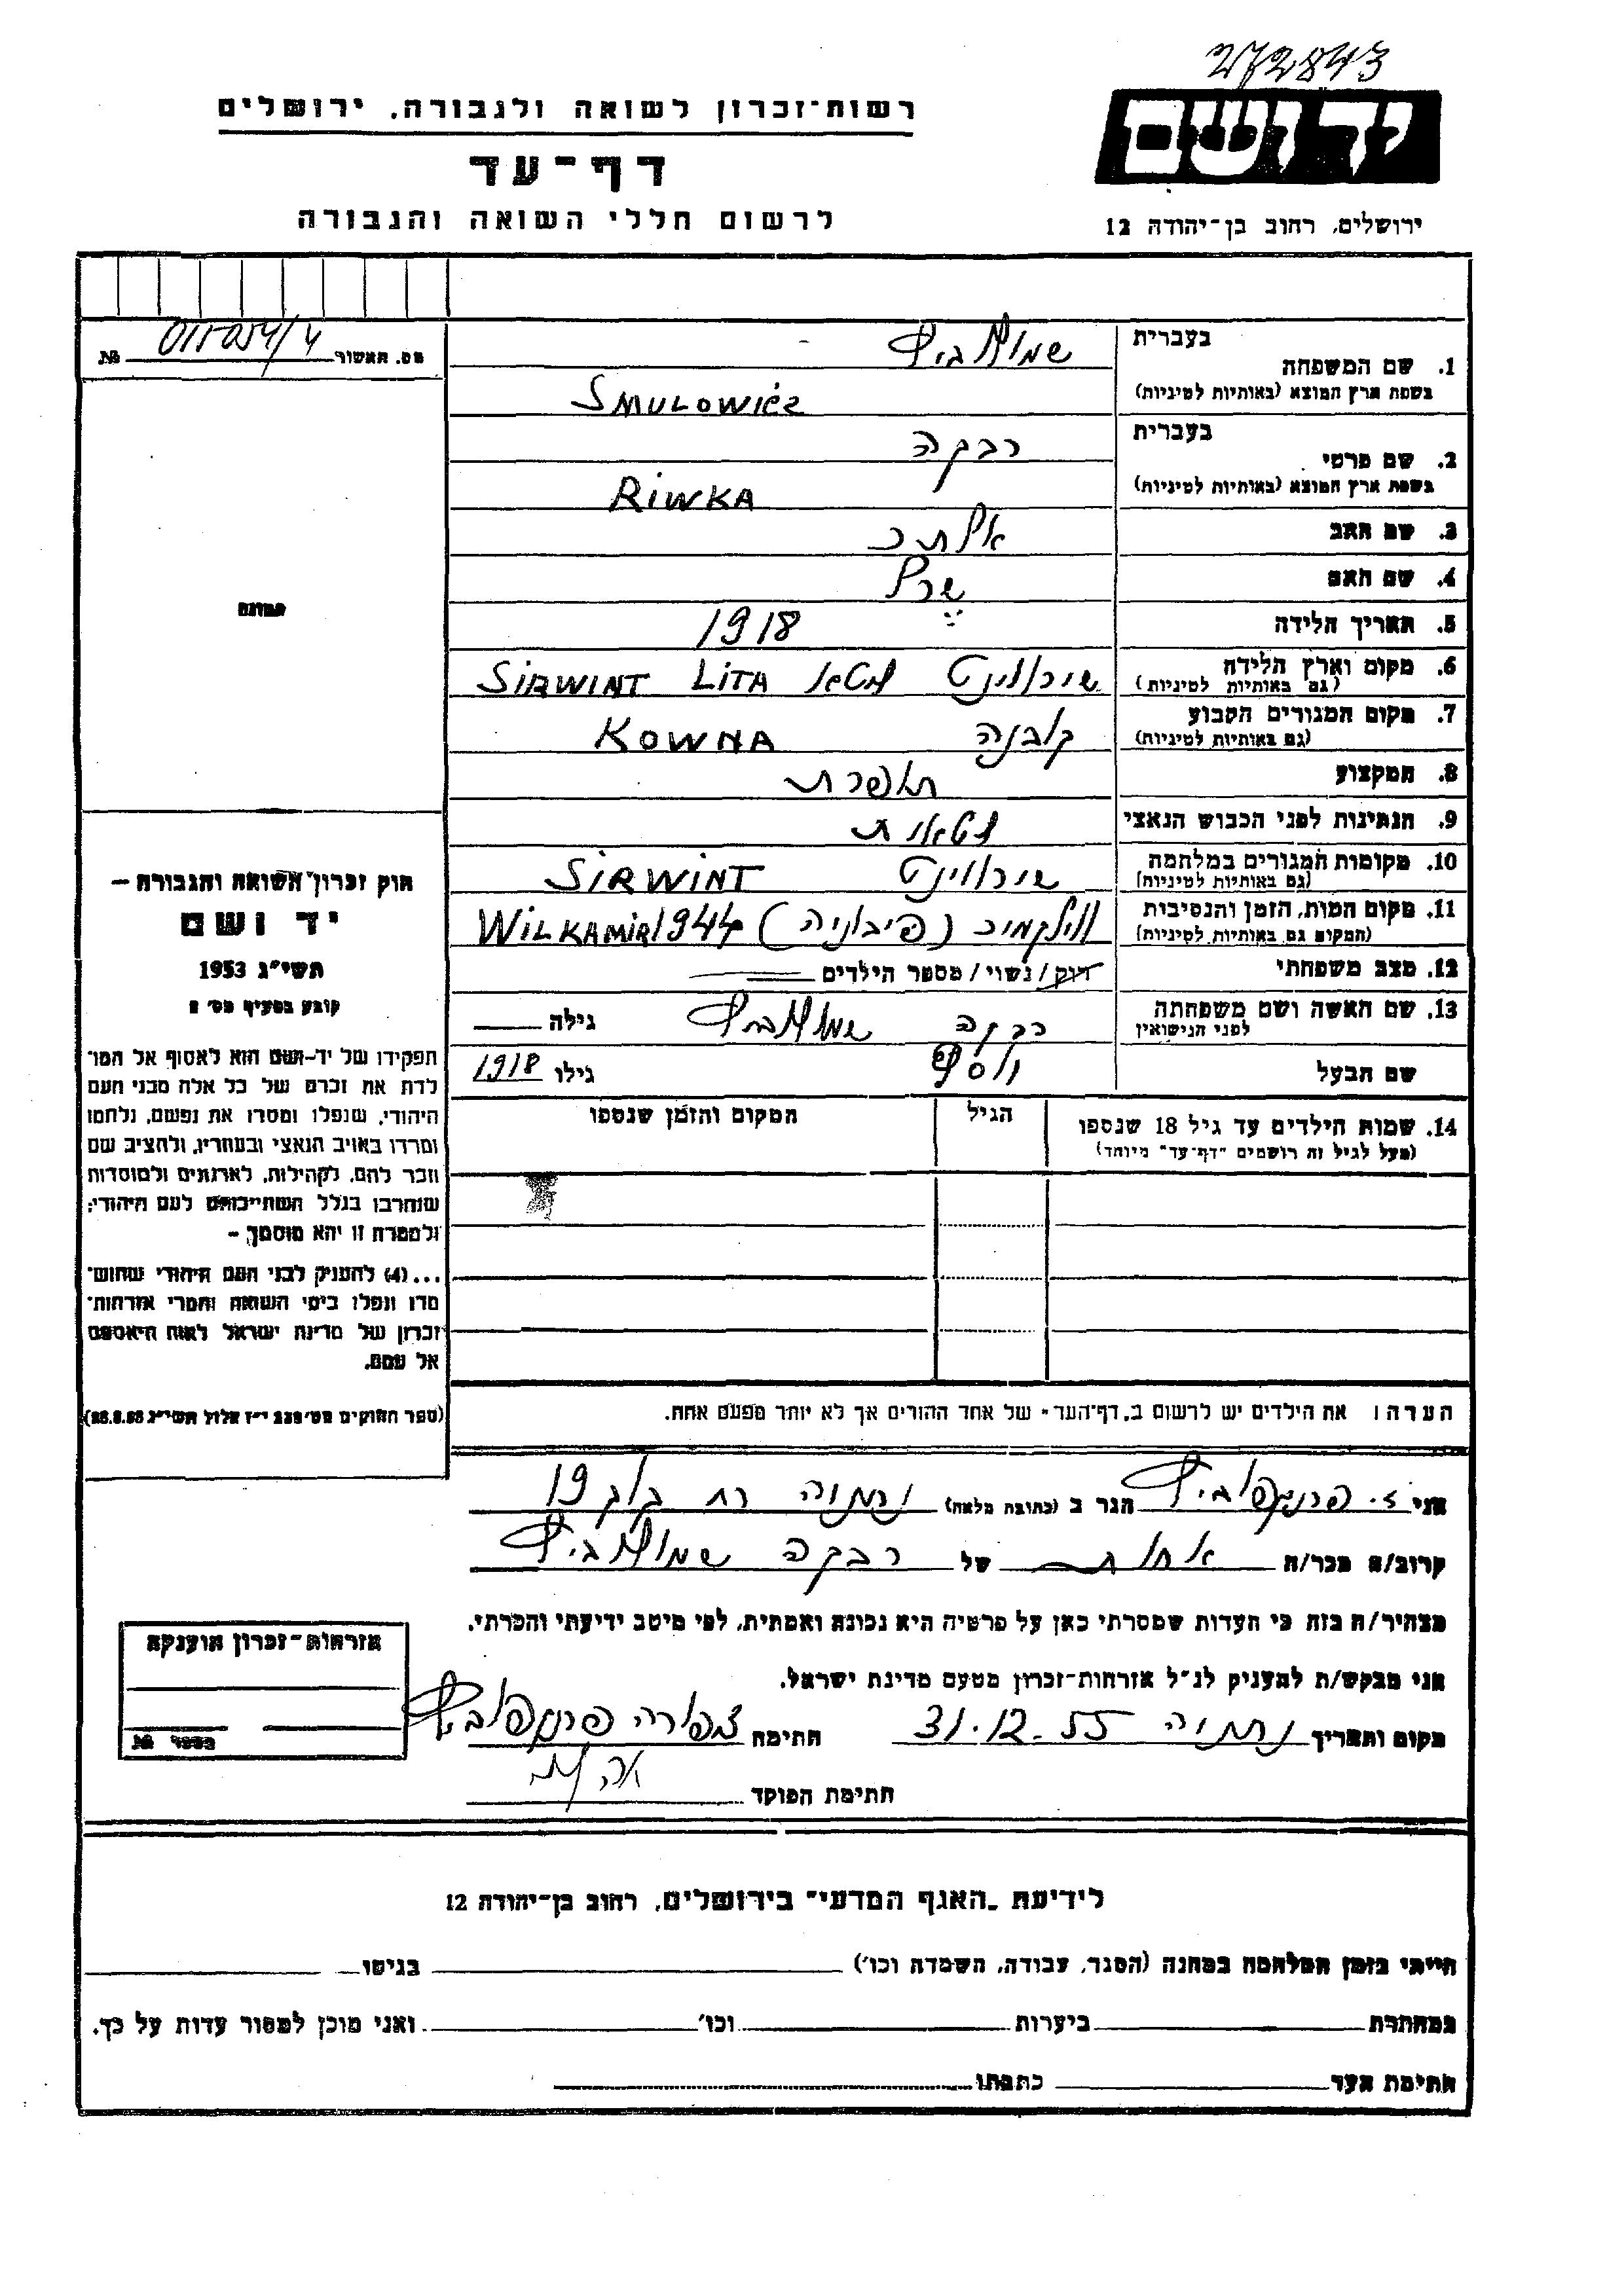 272843
ידושם
רשות־זכרון לשואה ולגבורה, ירושלים
דף־עד
לרשום חללי השואה והגבורה
ירושלים, רחוב בן־יהודה 12
מס. האשור №
בעברית שמולוביץ
1. שם המשפחה
בשפת ארץ המוצא (באותיות לטיניות) SMULOWICZ
בעברית רבקה
2. שם פרטי
בשפת ארץ המוצא (באותיות לטיניות) RIWKA
3. שם האב
4. שם האם
5. תאריך הלידה 1918
6. מקום וארץ הלידה שירווינט ליטא SIRWINT LITA
(גם באותיות לטיניות)
7. מקום המגורים הקבוע קובנה KOWNA
(גם באותיות לטיניות)
8. המקצוע תופרת
9. הנתינות לפני הכבוש הנאצי ליטאית
10. מקומות המגורים במלחמה שירווינט SIRWINT
(גם באותיות לטיניות)
11. מקום המות, הזמן והנסיבות ווילקמיר (פיבוניה) WILKAMIR 1944
(המקום גם באותיות לטיניות)
12. מצב משפחתי רווק / נשוי / מספר הילדים
13. שם האשה ושם משפחתה רבקה שמולוביץ גילה
לפני הנישואין
שם הבעל יוסף גילו 1918
14. שמות הילדים עד גיל 18 שנספו הגיל המקום והזמן שנספו
(מעל לגיל זה רושמים "דף־עד" מיוחד)
תמונה
חוק זכרון השואה והגבורה –
יד ושם
תשי"ג 1953
קובע בסעיף מס' 2
תפקידו של יד־ושם הוא לאסוף אל המו־
לדת את זכרם של כל אלה מבני העם
היהודי, שנפלו ומסרו את נפשם, נלחמו
ומרדו באויב הנאצי ובעוזריו, ולהציב שם
וזכר להם, לקהילות, לארגונים ולמוסדות
שנחרבו בגלל השתייכותם לעם היהודי;
ולמטרה זו יהא מוסמך –
...(4) להעניק לבני העם היהודי שהוש־
מדו ונפלו בימי השואה והמרי אזרחות־
זכרון של מדינת ישראל לאות היאספם
אל עמם.
(ספר החוקים מס' 132 י"ז אלול תשי"ג 28.8.53)
הערה: את הילדים יש לרשום ב"דף־העד" של אחד ההורים אך לא יותר מפעם אחת.
אני צ. פרנקפלוביץ הגר ב (כתובת מלאה) נתניה רח 19
קרוב/ה מכר/ה אחות של רבקה שמולוביץ
מצהיר/ה בזה כי העדות שמסרתי כאן על פרטיה היא נכונה ואמתית, לפי מיטב ידיעתי והכרתי.
אני מבקש/ת להעניק לנ"ל אזרחות־זכרון מטעם מדינת ישראל.
מקום ותאריך נתניה 31.12.55 חתימה צפורה פרנקפלוביץ
חתימת הפוקד
אזרחות־זכרון הוענקה
מספר №
לידיעת "האגף המדעי" בירושלים, רחוב בן־יהודה 12
הייתי בזמן המלחמה במחנה (הסגר, עבודה, השמדה וכו') בגיטו
במחתרת ביערות וכו' ואני מוכן למסור עדות על כך.
חתימת העד כתבתו